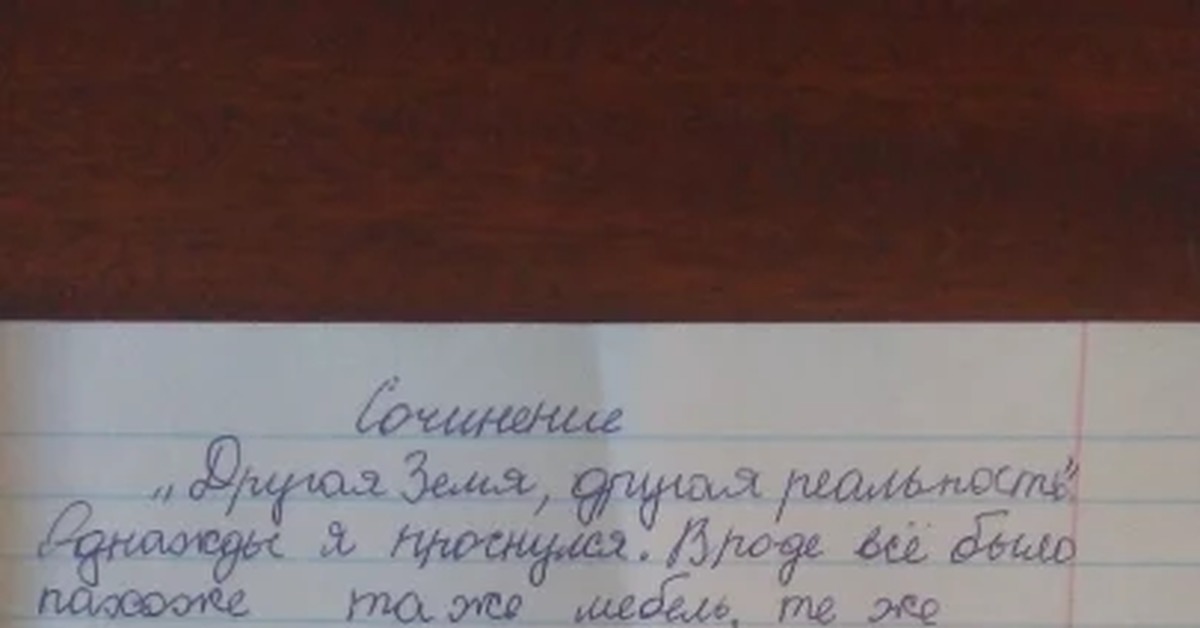 Сочинение
„Другая Земля, другая реальность"
Однажды я проснулся. Вроде всё было
похоже та же мебель, те же